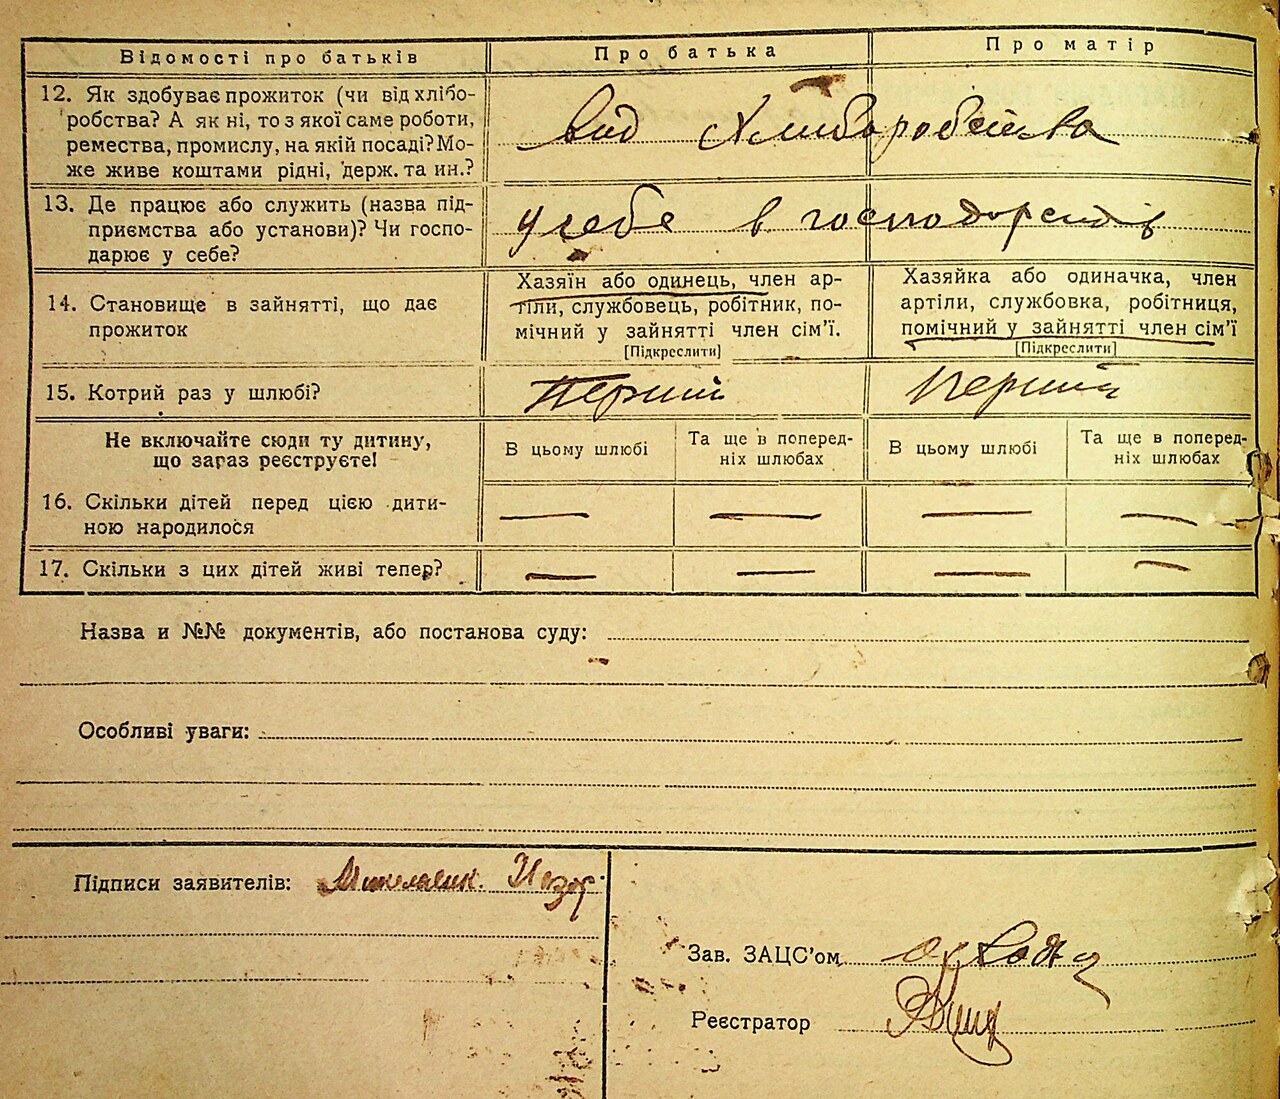 Відомості про батьків
Про батька
Про матір
12. Як здобуває прожиток (чи від хлібо-
робства? А як ні, то з якої саме роботи,
ремества, промислу, на якій посаді? Мо-
же живе коштами рідні, держ. та ин.?
вид Хлиборобства
13. Де працює або служить (назва під-
приємства або установи)? Чи госпо-
дарює у себе?
у себе в господарстві
14. Становище в зайнятті, що дає
прожиток
Хазяїн або одинець, член ар-
тіли, службовець, робітник, по-
мічний у зайнятті член сім'ї.
[Підкреслити]
Хазяйка або одиначка, член
артіли, службовка, робітниця,
помічний у зайнятті член сім'ї
[Підкреслити]
15. Котрий раз у шлюбі?
Перший
Перший
Не включайте сюди ту дитину,
що зараз реєструєте!
В цьому шлюбі
Та ще в поперед-
ніх шлюбах
В цьому шлюбі
Та ще в поперед-
ніх шлюбах
16. Скільки дітей перед цією дити-
ною народилося
— — — —
17. Скільки з цих дітей живі тепер?
— — — —
Назва и №№ документів, або постанова суду:
Особливі уваги:
Підписи заявителів:
Зав. ЗАЦС'ом
Реєстратор